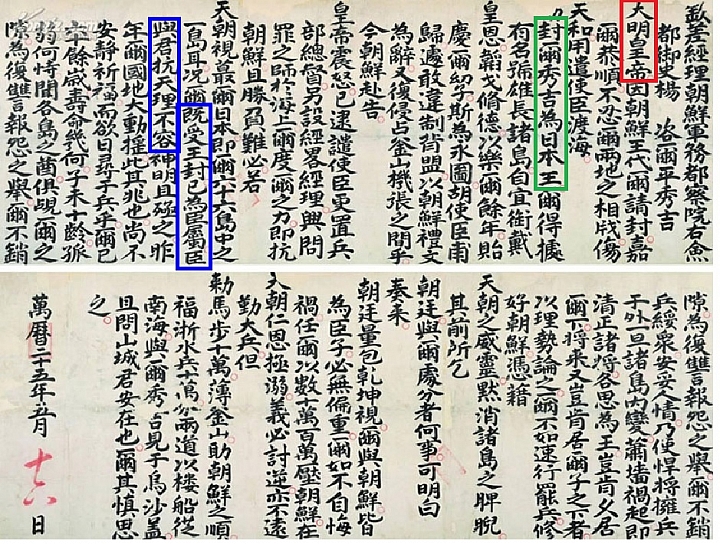 欽差經理朝鮮軍務都察院右僉
都御史楊 咨爾平秀吉
大明皇帝因朝鮮王代爾請封嘉
爾恭順不忍爾兩地之相戕傷
天和用遣使臣渡海
封爾秀吉為日本王爾得據
有名號雄長諸島自宜銜戴
皇恩韜戈脩德以樂爾餘年貽
慶爾幼子斯為永圖胡使臣甫
歸遽敢違制背盟以朝鮮禮文
為辭又復侵占釜山機張之間乎
今朝鮮赴告
皇帝震怒已逮譴使臣更置兵
部總督另設經畧經理興問
罪之師於海上爾度爾之力即抗
朝鮮且勝負難必若
天朝視蕞爾日本即爾六十六島中之
一島耳況爾既受王封已為臣屬臣
與君抗天理不容神明且殛之昨
年爾國地大動摧此其兆也尚不
安靜祈福而欲日尋于兵乎爾已
六十餘歲壽命幾何子未十齡孤
弱何恃聞各島之酋俱覬爾之
隙為復讐報怨之舉爾不銷
隙為復讐報怨之舉爾不銷
兵綏衆安妥人情乃使悍將擁兵
于外一旦諸島內變蕭墻禍起即
清正諸將各思為王豈肯久居
爾下將來又豈肯居爾子之下者
以理勢論之爾不如速行罷兵修
好朝鮮憑藉
天朝之威靈默消諸島之睥睨
其前所乞
朝廷與爾處分者何事可明白
奏來
朝廷量包乾坤視爾與朝鮮皆
為臣子必無偏重爾如不自悔
禍任爾以數十萬百萬壓朝鮮在
天朝仁恩極溺義必討逆亦不遠
勤大兵但
勑馬步十萬薄釜山助朝鮮之順
福浙水兵六萬分兩道以樓船從
南海與爾秀吉見于烏沙蓋
且問山城君安在也爾其慎思
之
萬曆二十五年五月十六日